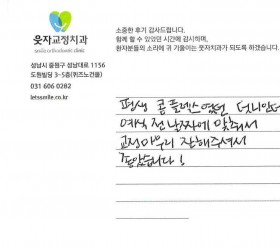 웃자교정치과
smile orthodontic clinic
성남시 중원구 성남대로 1156
도원빌딩 3~5층(위즈노건물)
031 606 0282
letssmile.co.kr
소중한 후기 감사드립니다.
함께 할 수 있었던 시간에 감사하며,
환자분들의 소리에 귀 기울이는 웃자치과가 되도록 하겠습니다.
평생 콤플렉스였던 덧니였는데
예식 전 날짜에 맞춰서
교정마무리 잘해주셔서
좋았습니다!